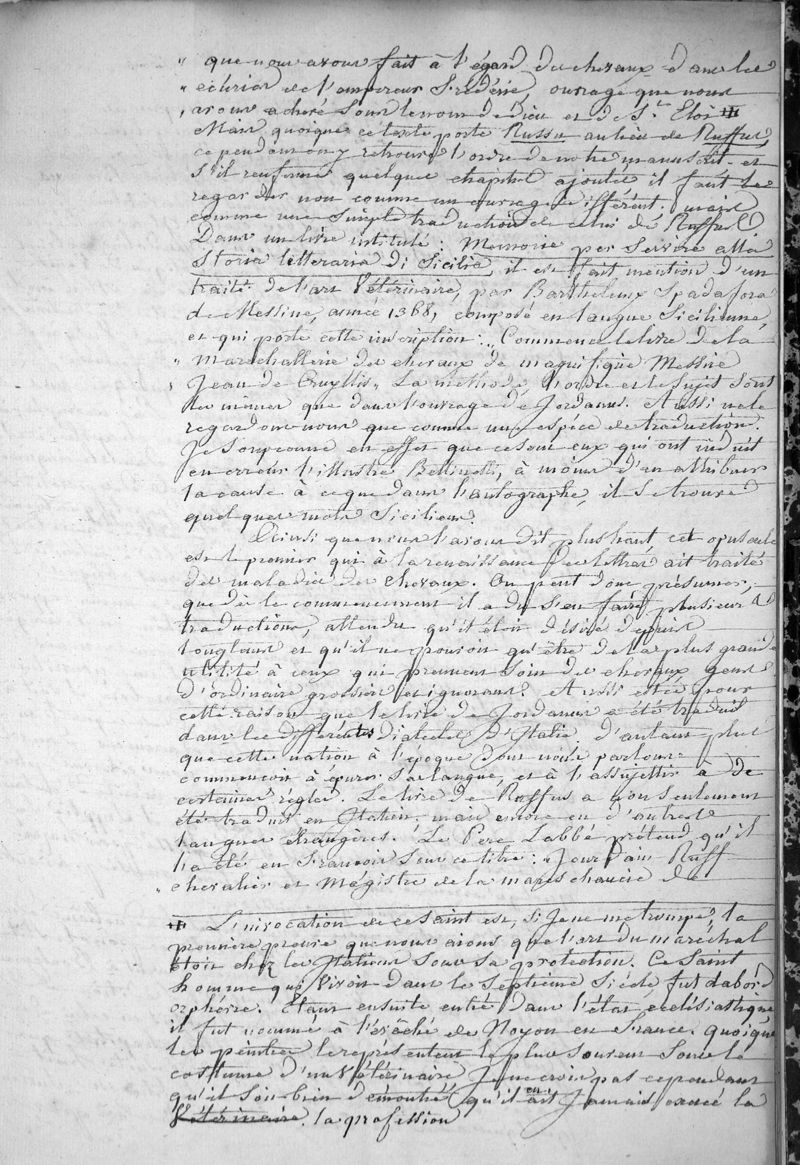 " que nous avons fait à l'égard des chevaux dans les
" écuries de l'empereur Frédéric, ouvrage que nous
, avons achevé sous le nom de Dieu et de St Eloi ⧻
Mais quoique ce texte porte Russu au lieu de Ruffus,
cependant on y retrouve l'ordre de notre manuscrit et
s'il renferme quelques chapitres ajoutés il faut le
regarder non comme un ouvrage différent, mais
comme une simple traduction de celui de Ruffus.
Dans un livre intitulé: Memorie per servire alla
Storia letteraria di Sicilia, il est fait mention d'un
traité de l'art Vétérinaire, par Barthelemy Spadafora
de Messine, année 1368, composé en langue Sicilienne,
et qui porte cette inscription: „ Commence le livre de la
" maréchallerie des chevaux de magnifique Messire
, Jean de Cruyllis „ La méthode, l'ordre et le sujet sont
les mêmes que dans l'ouvrage de Jordanus. Aussi ne le
regardons nous que comme une espèce de traduction.
Je soupçonne en effet que ce sont eux qui ont induit
en erreur l'illustre Bettinelli, à moins d'en attribuer
la cause à ce que dans l'autographe, il se trouve
quelques mots Siciliens.
Ainsi que nous l'avons dit plus haut, cet opuscule
est le premier qui à la renaissance des lettres ait traité
des maladies des chevaux. On peut donc présumer,
que dès le commencement il a du s'en faire plusieurs
traductions, attendu qu'il étoit désiré depuis
longtems et qu'il ne pouvoit qu'être de la plus grande
utilité à ceux qui prennent soin des chevaux gens
d'ordinaire grossiers et ignorans. Aussi est-ce pour
cette raison que le livre de Jordanus a été traduit
dans les différents dialectes d'Italie, d'autant plus
que cette nation à l'époque dont nous parlons
commençoit à épurer sa langue, et à l'assujettir à de
certaines règles. Le livre de Ruffus a non seulement
été traduit en Italien mais encore en d'autres
langues étrangères. Le Pere Labbé prétend qu'il
l'a été en François sous ce titre: „ Jourdain Ruff
" chevalier et Mégistre de la mareschaucie de
⧻ L'invocation de ce Saint est, si je ne me trompe, la
première preuve que nous avons que l'art du maréchal
étoit chez les Italiens sous sa protection. Ce Saint
homme qui vivoit dans le septieme Siècle, fut d'abord
orphévre. Etant ensuite entré dans l'état ecclésiastique
il fut nommé à l'évêché de Noyon en France. quoique
les peintres le représentent le plus souvent sous le
costume d'un Vétérinaire Je ne crois pas cependant
qu'il soit bien démontré qu'il en ait jamais exercé la
Vétérinaire. la profession